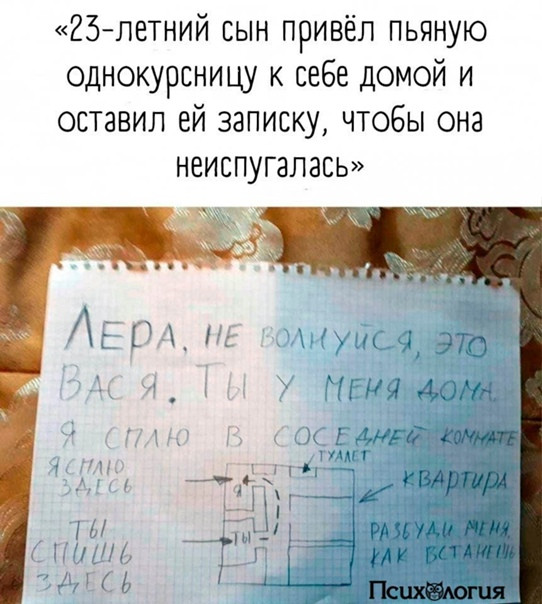 «23-летний сын привёл пьяную
однокурсницу к себе домой и
оставил ей записку, чтобы она
неиспугалась»
ЛЕРА, НЕ ВОЛНУЙСЯ, ЭТО
ВАСЯ. ТЫ У МЕНЯ ДОМА
Я СПЛЮ В СОСЕДНЕЙ КОМНАТЕ
Я СПЛЮ
ЗДЕСЬ
ТУАЛЕТ
Я
КВАРТИРА
ТЫ
СПИШЬ
ЗДЕСЬ
ТЫ
РАЗБУДИ МЕНЯ
КАК ВСТАНЕШЬ
Психология